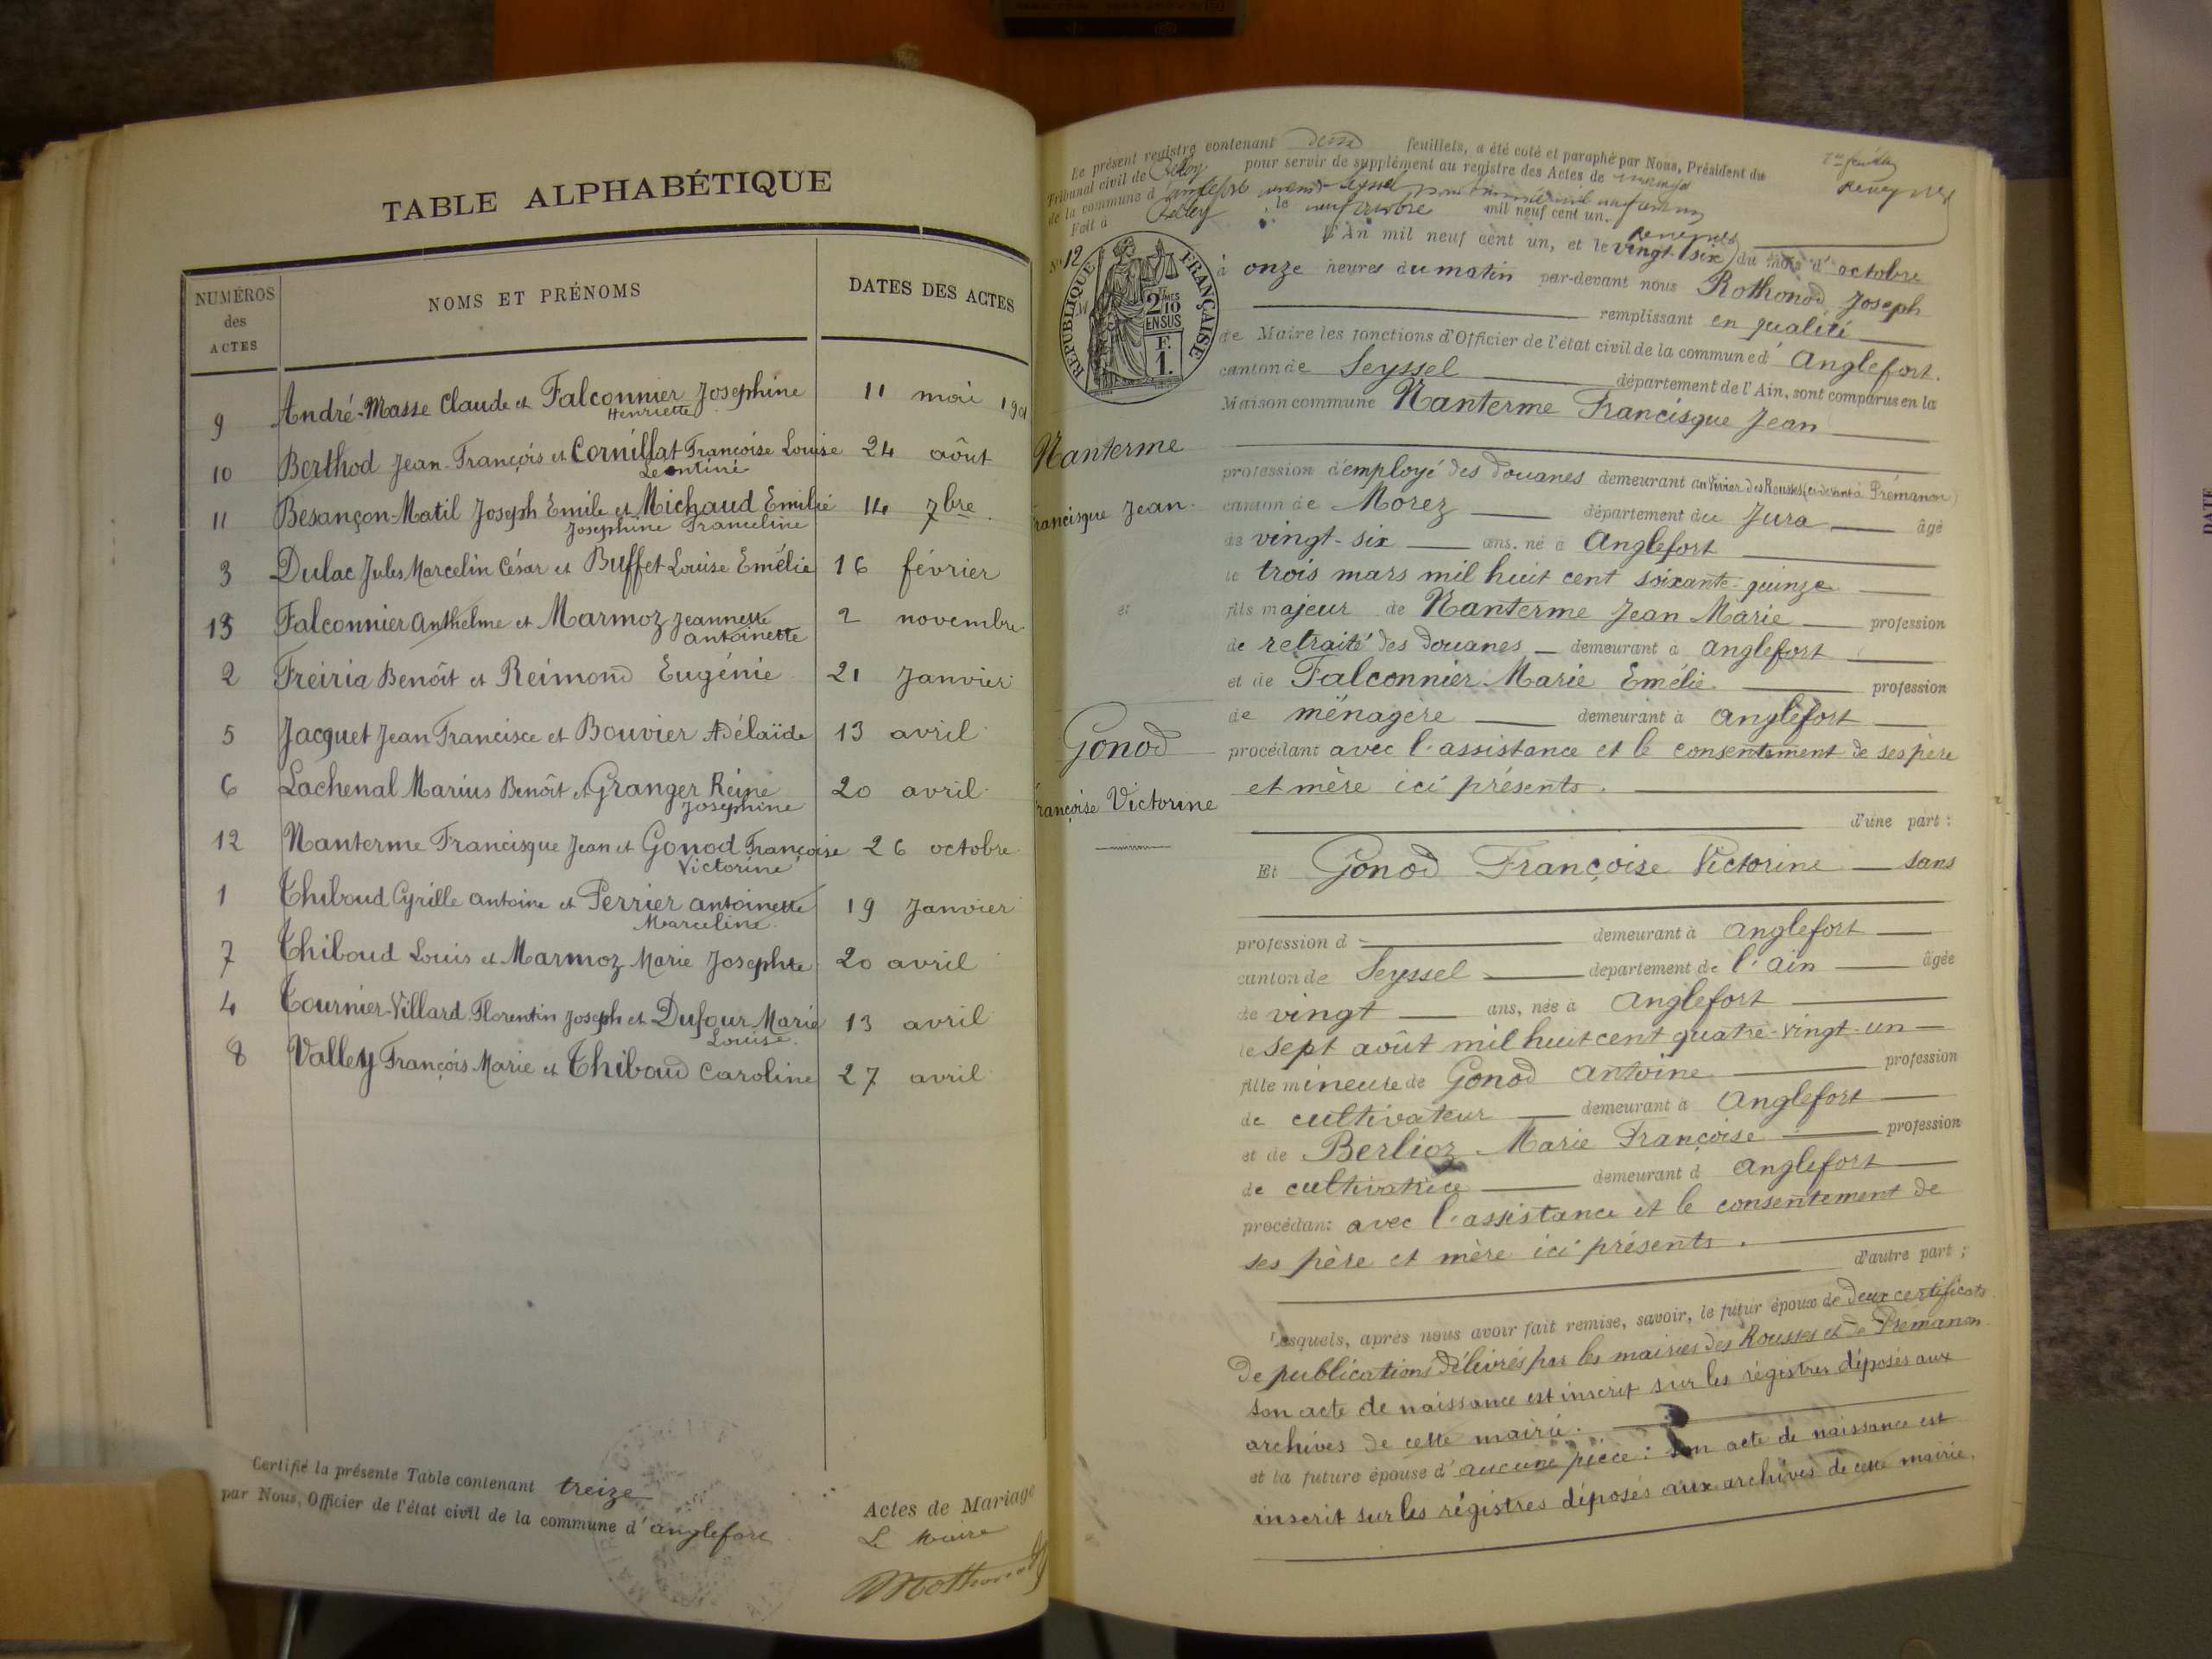 TABLE ALPHABÉTIQUE
NUMÉROS des ACTES
NOMS ET PRÉNOMS
DATES DES ACTES
9 André-Masse Claude et Falconnier Josephine 11 mai 1901
Henriette
10 Berthod Jean-François et Cornillat Françoise Louise 24 août
Léontine
11 Besançon-Matil Joseph Emile et Michaud Emilie 14 7bre
Josephine Franceline
3 Dulac Jules Marcelin César et Buffet Louise Emélie 16 février
13 Falconnier Anthelme et Marmoz Jeannette 2 novembre
antoinette
2 Freiria Benôit et Reimond Eugénie 21 Janvier
5 Jacquet Jean Francisce et Bouvier Adélaïde 13 avril
6 Lachenal Marius Benôit et Granger Reine 20 avril
Josephine
12 Nanterme Francisque Jean et Gonod Françoise 26 octobre
Victorine
1 Thiboud Cyrille antoine et Perrier antoinette 19 Janvier
Marceline
7 Thiboud Louis et Marmoz Marie Josephte 20 avril
4 Tournier-Villard Florentin Joseph et Dufour Marie 13 avril
Louise
8 Valley François Marie et Thiboud Caroline 27 avril
Certifié la présente Table contenant treize Actes de Mariage
par Nous, Officier de l'état civil de la commune d'anglefort
Le Maire
Le présent registre contenant deux feuillets, a été coté et paraphé par Nous, Président du
Tribunal civil de Belley pour servir de supplément au registre des Actes de mariage
de la commune d'anglefort
Fait à Belley, le neuf octobre mil neuf cent un.
No 12
RÉPUBLIQUE FRANÇAISE
2/10 EN SUS
F. 1.
L'An mil neuf cent un, et le vingt-six du mois d'octobre
à onze heures du matin par-devant nous Rothonod Joseph
remplissant en qualité
de Maire les fonctions d'Officier de l'état civil de la commune d'Anglefort.
canton de Seyssel département de l'Ain, sont comparus en la
Maison commune Nanterme Francisque Jean
Nanterme
Francisque Jean
profession d'employé des douanes demeurant au Vivier des Rousses (ci-devant à Prémanon)
canton de Morez département du Jura âgé
de vingt-six ans, né à Anglefort
le trois mars mil huit cent soixante-quinze
et
fils majeur de Nanterme Jean Marie profession
de retraité des douanes demeurant à anglefort
et de Falconnier Marie Emélie profession
de ménagère demeurant à anglefort
Gonod
Françoise Victorine
procédant avec l'assistance et le consentement de ses père
et mère ici présents.
d'une part :
Et Gonod Françoise Victorine sans
profession d demeurant à anglefort
canton de Seyssel département de l'ain âgée
de vingt ans, née à anglefort
le sept août mil huit cent quatre-vingt-un
fille mineure de Gonod antoine profession
de cultivateur demeurant à anglefort
et de Berlioz Marie Françoise profession
de cultivatrice demeurant à anglefort
procédant avec l'assistance et le consentement de
ses père et mère ici présents.
d'autre part ;
Lesquels, après nous avoir fait remise, savoir, le futur époux de deux certificats
de publications délivrés par les mairies des Rousses et de Prémanon
son acte de naissance est inscrit sur les régistres déposés aux
archives de cette mairie.
et la future épouse d'aucune pièce : son acte de naissance est
inscrit sur les régistres déposés aux archives de cette mairie.
DATE